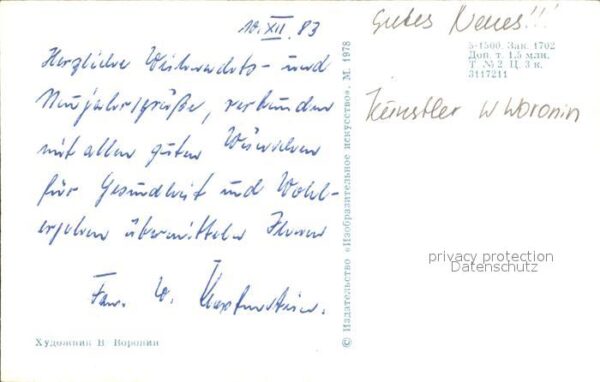 10.XII.83
Herzliche Weihnachts- und
Neujahrsgrüße, verbunden
mit allen guten Wünschen
für Gesundheit und Wohl-
ergehen übermitteln Ihnen
Fam. W.
Художник В. Воронин
© Издательство «Изобразительное искусство». М. 1978
Gutes Neues!!!
5-1500. Зак. 1702
Доп. т. 1,5 млн.
Т № 2 Ц. 3 к.
3117211
Künstler W Woronin
privacy protection
Datenschutz